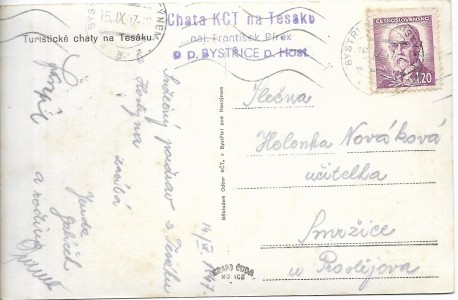 Turistické chaty na Tesáku.
15.IX.47
Chata KČT na Tesáku
naj. František Pírek
p. BYSTŘICE p. Host.
ČESKOSLOVENSKO
1.20
BYSTŘI
Srdečný pozdrav z Tesáku
Hostýna zasílá
a rodina
14/IX 1947.
Nákladem Odbor KČT, v Bystřici pod Hostýnem
GRAFO ČUDA
HOLICE
Slečna
Helenka Nováková
učitelka
Smržice
u Prostějova